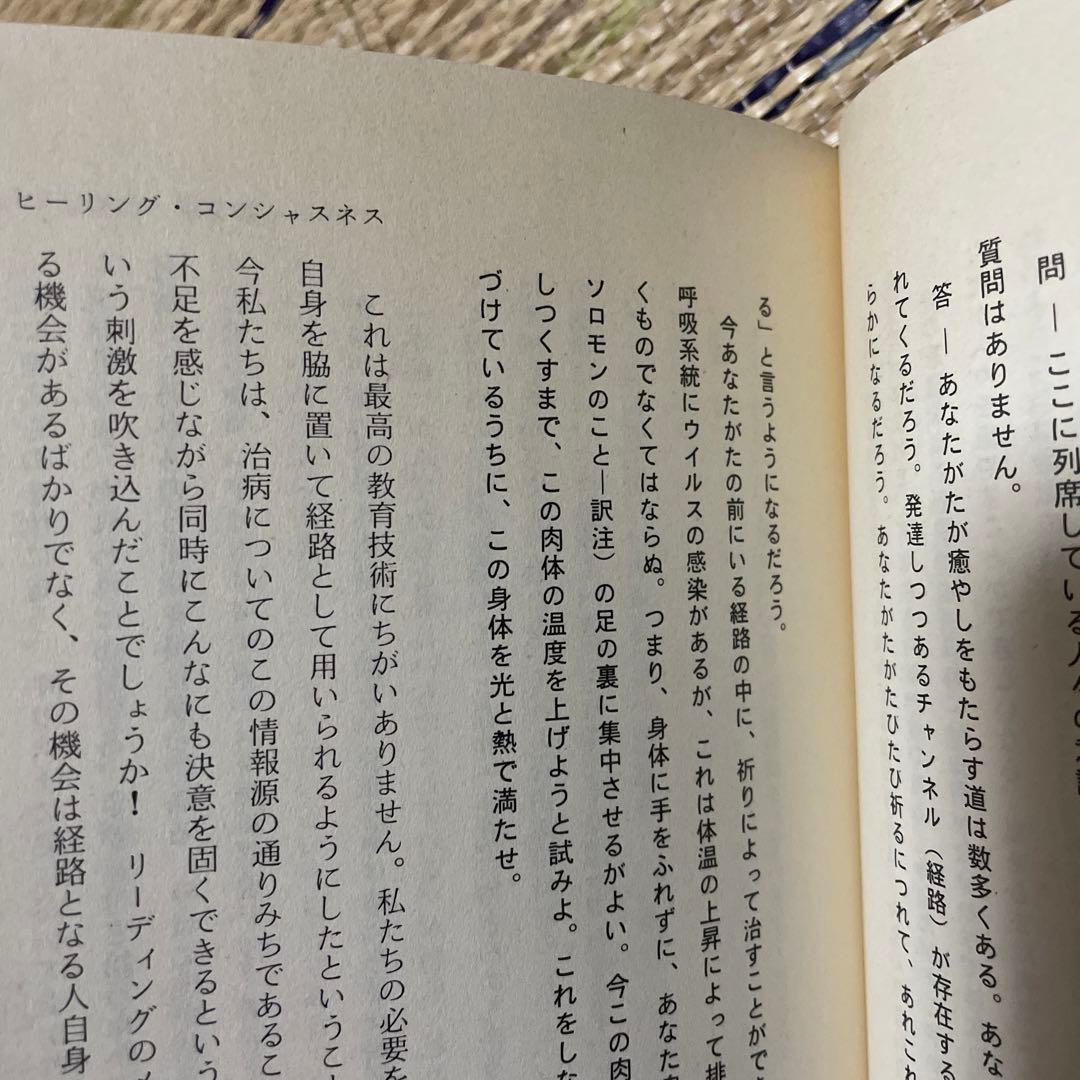 問―ここに列席している人々の
質問はありません。
答―あなたがたが癒やしをもたらす道は数多くある。あな
れてくるだろう。発達しつつあるチャンネル（経路）が存在する
らかになるだろう。あなたがたがたびたび祈るにつれて、あれこれ
ヒーリング・コンシャスネス
る」と言うようになるだろう。
今あなたがたの前にいる経路の中に、祈りによって治すことがで
呼吸系統にウイルスの感染があるが、これは体温の上昇によって排
くものでなくてはならぬ。つまり、身体に手をふれずに、あなた
ソロモンのこと―訳注）の足の裏に集中させるがよい。今この肉
しつくすまで、この肉体の温度を上げようと試みよ。これをしな
づけているうちに、この身体を光と熱で満たせ。
これは最高の教育技術にちがいありません。私たちの必要を
自身を脇に置いて経路として用いられるようにしたというこ
今私たちは、治病についてのこの情報源の通りみちであるこ
不足を感じながら同時にこんなにも決意を固くできるという
いう刺激を吹き込んだことでしょうか！　リーディングの
る機会があるばかりでなく、その機会は経路となる人自身